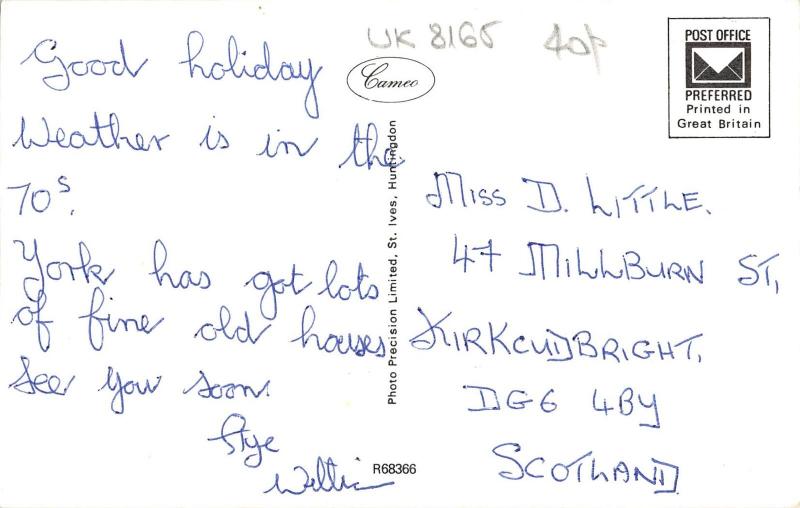 Good holiday
Weather is in the
70s.
York has got lots
of fine old houses
See you soon.
UK 8165 40p
Cameo
Photo Precision Limited, St. Ives, Huntingdon
R68366
POST OFFICE
PREFERRED
Printed in
Great Britain
Miss D. LITTLE.
47 MILLBURN ST,
KIRKCUDBRIGHT,
DG6 4BY
SCOTLAND